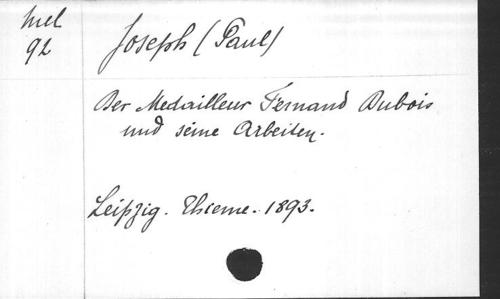 Mel
92
Joseph (Paul)
Der Medailleur Fernand Dubois
und seine Arbeiten.
Leipzig. Thieme. 1893.